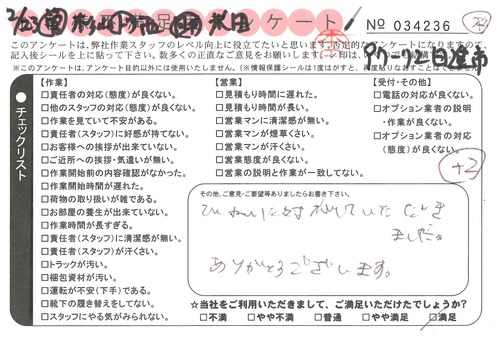 足 アンケート
No 034236
このアンケートは、弊社作業スタッフのレベル向上に役立てたいと思います。否定的なアンケートになりますので、
記入後シールを上に貼って下さい。数多くの正直なご意見をお願いします。
※このアンケートは、アンケート目的以外には使用いたしません。(※情報保護シールは1度はがすと、再度貼りなおすことができません)
チェックリスト
【作業】
□責任者の対応(態度)が良くない。
□他のスタッフの対応(態度)が良くない。
□作業を見ていて安心がある。
□責任者(スタッフ)に好感が持てない。
□お客様への挨拶が出来ていない。
□ご近所への挨拶・気遣いが無い。
□作業開始前の内容確認がなかった。
□作業開始時間が遅れた。
□荷物の取り扱いが雑である。
□お部屋の養生が出来ていない。
□作業時間が長すぎる。
□責任者(スタッフ)に清潔感が無い。
□責任者(スタッフ)が汗くさい。
□トラックが汚い。
□梱包資材が汚い。
□運転が不安(下手)である。
□靴下の履き替えをしてない。
□スタッフにやる気がみられない。
【営業】
□見積もり時間に遅れた。
□見積もり時間が長い。
□営業マンに清潔感が無い。
□営業マンが煙草くさい。
□営業マンが汗くさい。
□営業態度が良くない。
□営業の説明と作業が一致してない。
【受付・その他】
□電話の対応が良くない。
□オプション業者の説明
・作業が良くない。
□オプション業者の対応
(態度)が良くない。
+2
その他、ご意見・ご要望等ありましたらお書き下さい。
ていねいに対応していただき
ました。
ありがとうございます。
☆当社をご利用いただきまして、ご満足いただけたでしょうか?
□不満 □やや不満 □普通 □やや満足 □満足